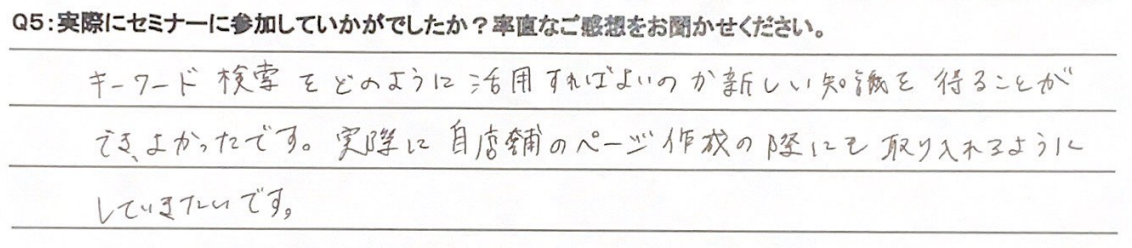 Q5:実際にセミナーに参加していかがでしたか？率直なご感想をお聞かせください。
キーワード検索をどのように活用すればよいのか新しい知識を得ることが
でき、よかったです。実際に自店舗のページ作成の際にも取り入れるように
していきたいです。